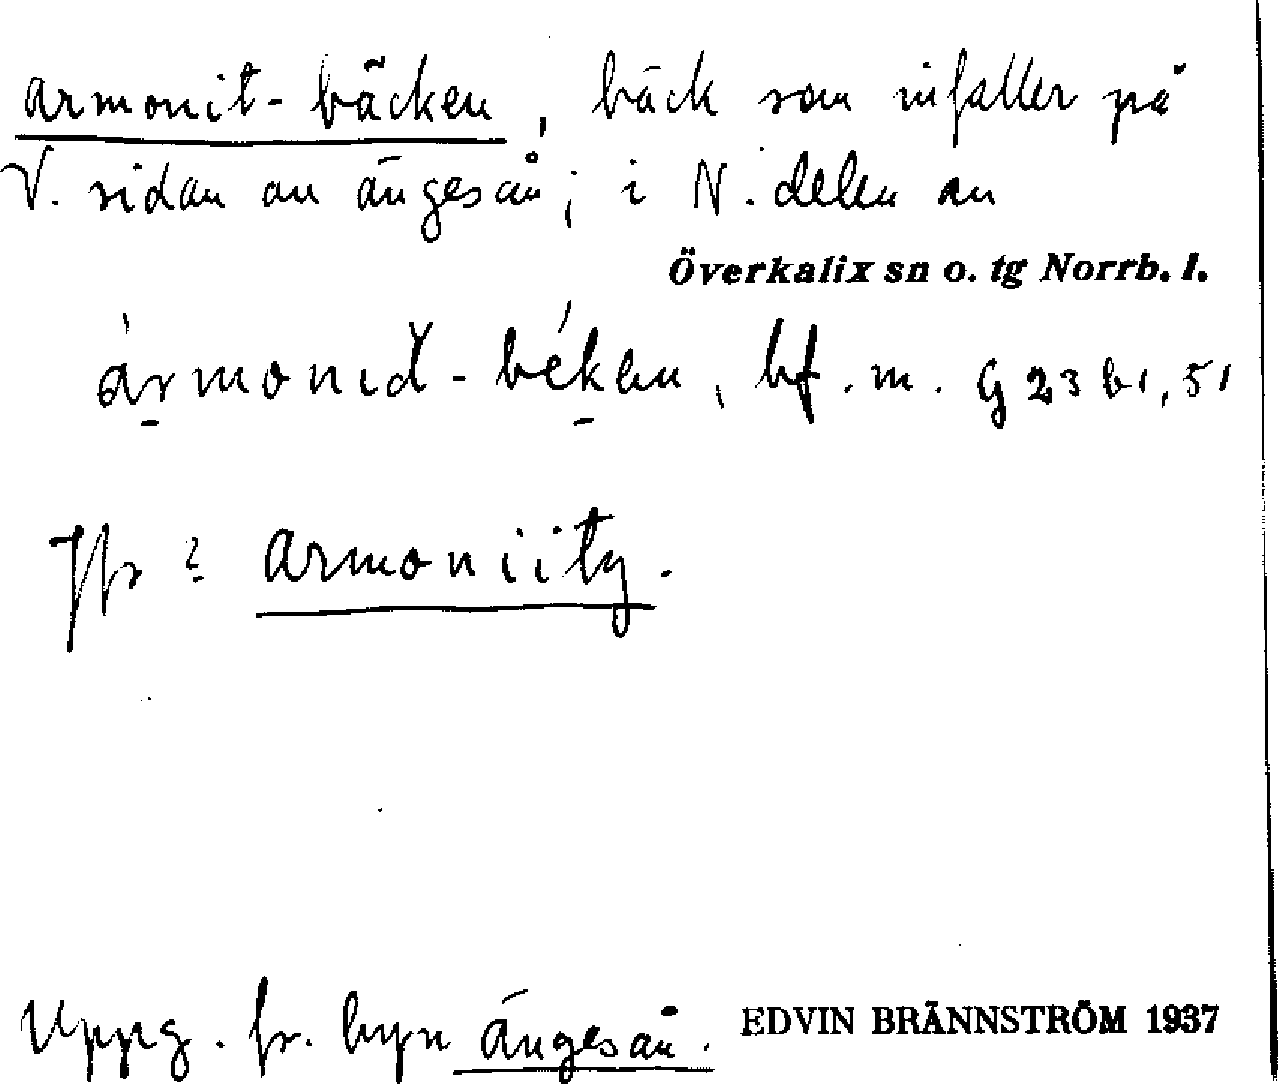 armonit-bäcken, bäck som infaller på
V. sidan av ängesån; i N. delen av
Överkalix sn o. tg Norrb. l.
àrmonıd̆-béken, bf. m. G 23 b1, 51
Jfr ? armoniity.
Uppg. fr. byn ängesån. EDVIN BRÄNNSTRÖM 1937